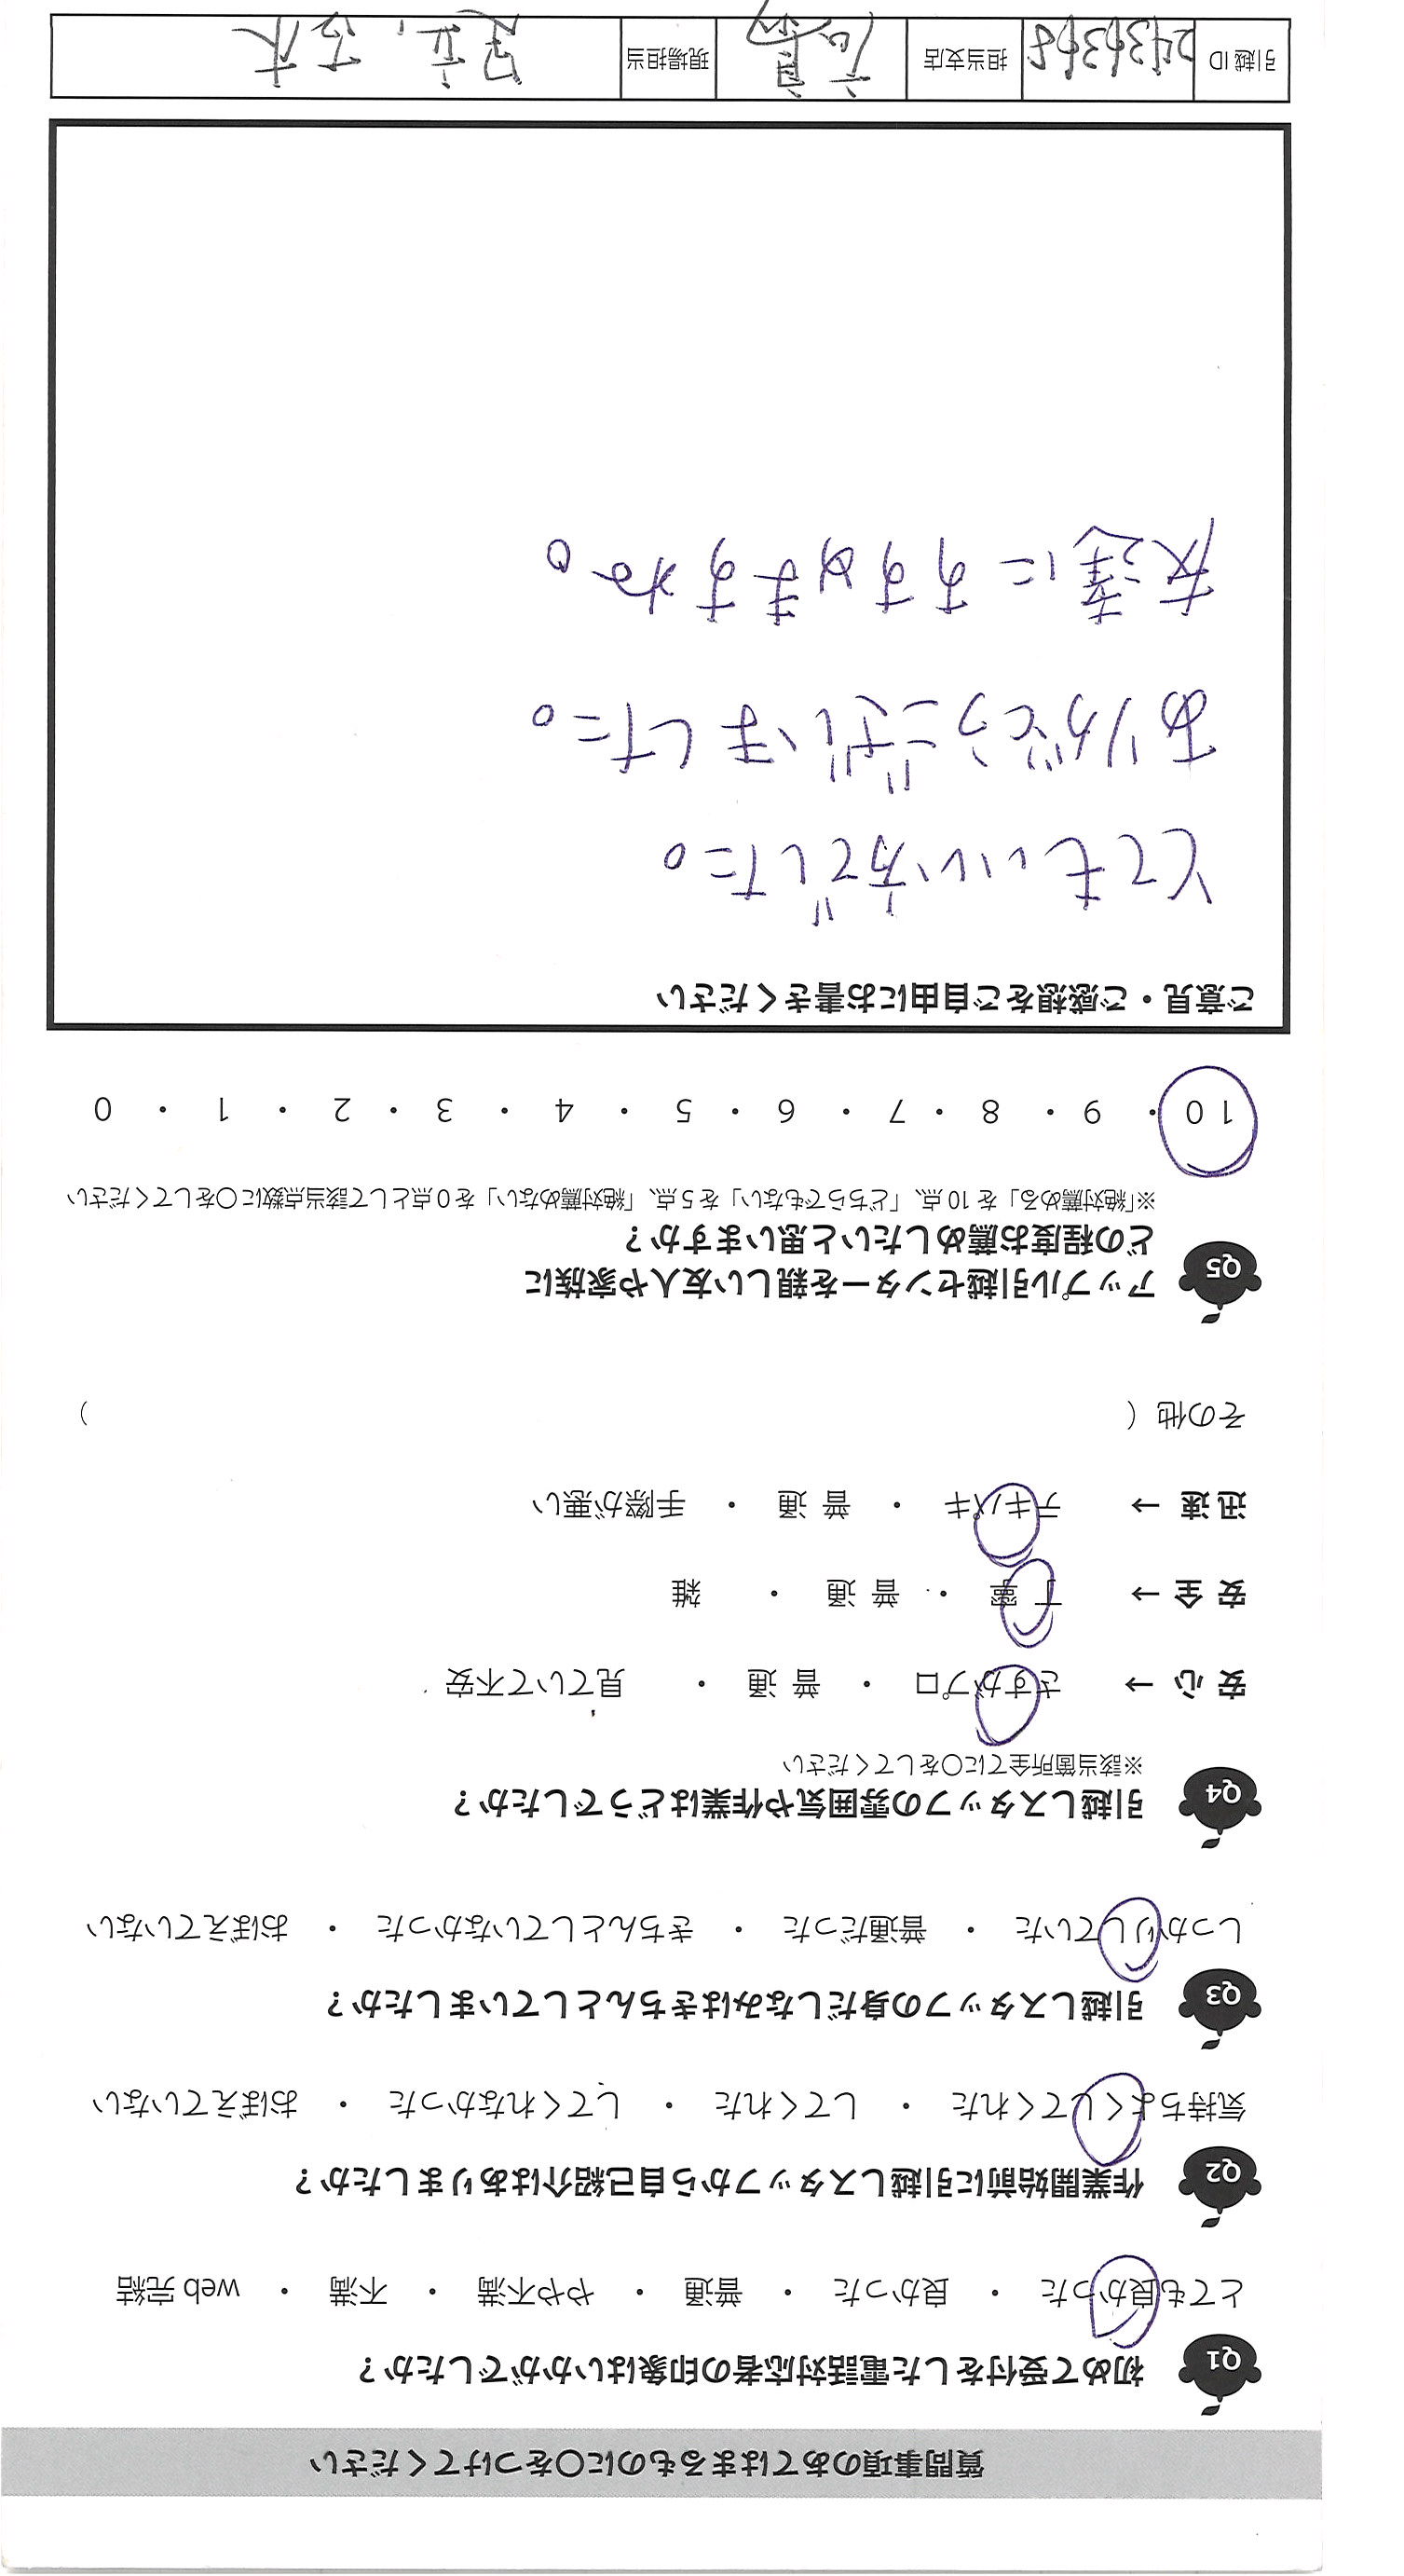 質問事項のあてはまるものに〇をつけてください
Q1 初めて受付をした電話対応者の印象はいかがでしたか？
とても良かった ・ 良かった ・ 普通 ・ やや不満 ・ 不満 ・ web 完結
Q2 作業開始前に引越しスタッフから自己紹介はありましたか？
気持ちよくしてくれた ・ してくれた ・ してくれなかった ・ おぼえていない
Q3 引越しスタッフの身だしなみはきちんとしていましたか？
しっかりしていた ・ 普通だった ・ きちんとしていなかった ・ おぼえていない
Q4 引越しスタッフの雰囲気や作業はどうでしたか？
※該当箇所全てに〇をしてください
安 心 → さすがプロ ・ 普 通 ・ 見ていて不安
安 全 → 丁 寧 ・ 普 通 ・ 雑
迅 速 → テキパキ ・ 普 通 ・ 手際が悪い
その他（ ）
Q5 アップル引越センターを親しい友人や家族に
どの程度お薦めしたいと思いますか？
※「絶対薦める」を 10 点、「どちらでもない」を 5 点、「絶対薦めない」を 0 点として該当点数に〇をしてください
10 ・ 9 ・ 8 ・ 7 ・ 6 ・ 5 ・ 4 ・ 3 ・ 2 ・ 1 ・ 0
ご意見・ご感想をご自由にお書きください
とてもいい方でした。
ありがとうございました。
友達にすすめますね。
引越 ID 2436368 担当支店 現場担当 足立